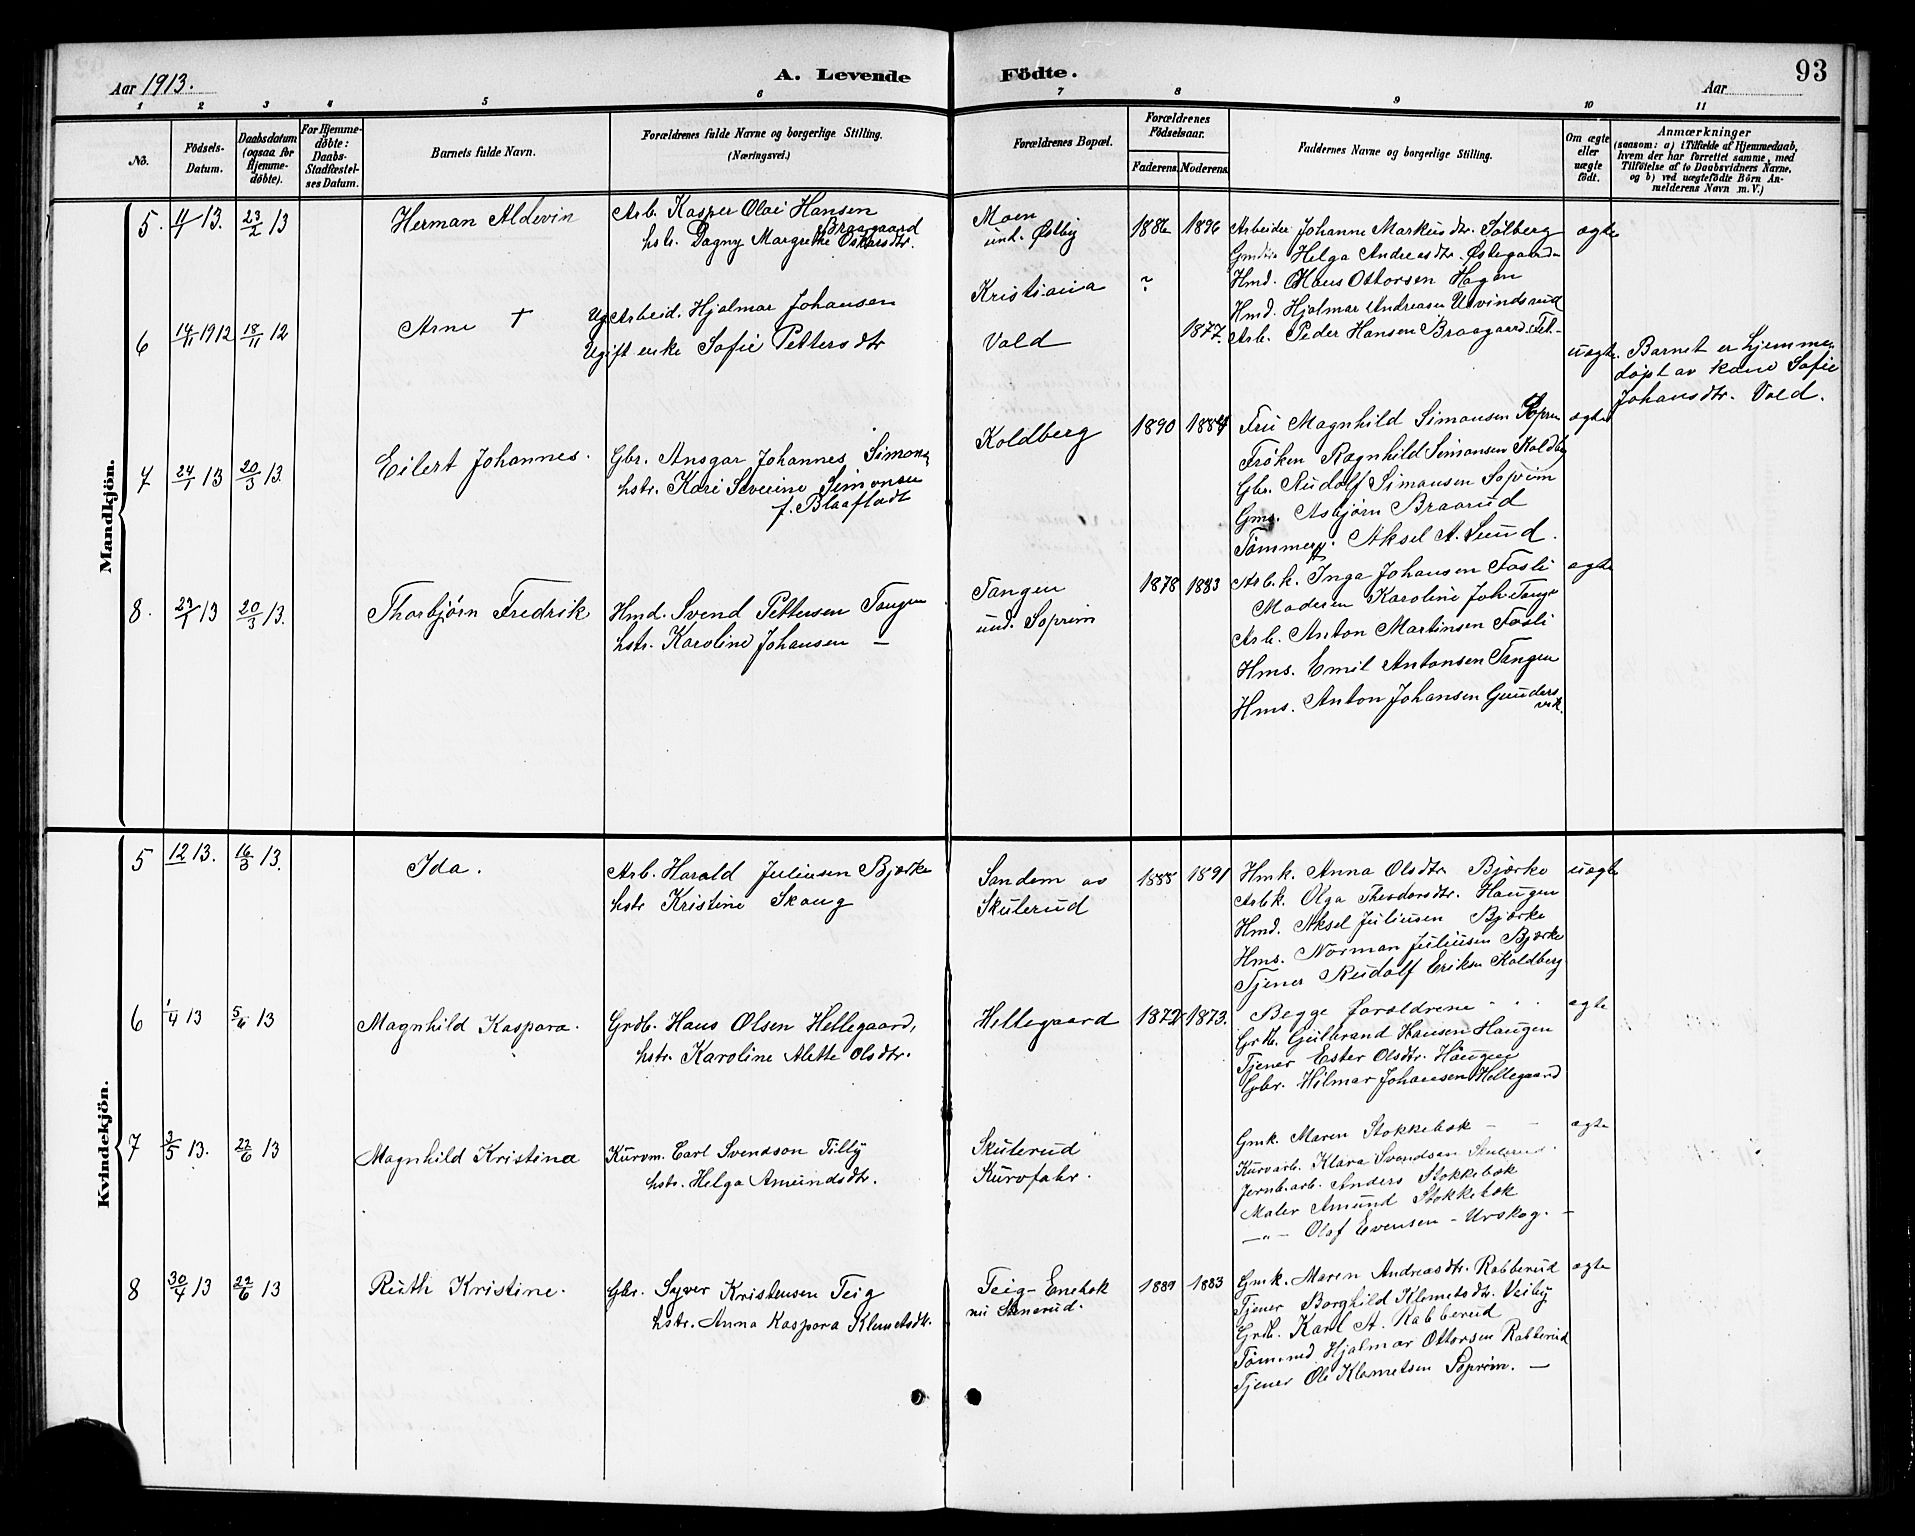 Aar 1913.
A. Levende
Födte.
Aar
93
1 2 3 4 5 6 7 8 9 10 11
No.
Födsels-Datum.
Daabsdatum (ogsaa for Hjemme-döbte).
For Hjemme-döbte: Daabs-Stadfæstelses Datum.
Barnets fulde Navn.
Forældrenes fulde Navne og borgerlige Stilling. (Næringsvei.)
Forældrenes Bopæl.
Forældrenes Födselsaar.
Faderens. Moderens.
Faddernes Navne og borgerlige Stilling.
Om ægte eller uægte födt.
Anmærkninger
(saasom: a) i Tilfælde af Hjemmedaab,
hvem der har forrettet samme, med
Tilföielse af to Daabsvidners Navne,
og b) ved uægtefödte Börn An-
melderens Navn m. V.)
Mandkjön.
5. 13. 23/2 13
Herman Aldevin
Arb. Kasper Olai Hansen
Braagaard
Dagny Margrethe Oskarsdtr.
Moen
und. Østby
1886 1896
Arbeider Johanne Markusdtr. Solberg
Helga Andreasdtr. Østegaard
Hmd. Hans Ottersen Hagen
Hmd. Hjalmar Andreasen
Arb. Peder Hansen Braagaard Fet.
ægte
6 14/11 1912 18/11 12
Arne +
Ug Arbeid. Hjalmar Johansen
Ugift enke Sofie Pettersdtr
Kristiania
Vold
? 1877.
uægte.
Barnet er hjemme-
døpt av kone Sofie
Johansdtr. Vold.
7 24/1 13 20/3 13.
Eilert Johannes.
Gbr. Ansgar Johannes Simons
hstr. Kari Severine Simonsen
f. Blaafladt
Koldberg
1890 1884
Fru Magnhild Simonsen Soprim
Frøken Ragnhild Simonsen Koldbg
Gbr. Rudolf Simonsen Soprim
Gms. Asbjørn Braarud
Tømmerf. Aksel A. Lund.
ægte
8. 29/1 13 20/3 13.
Thorbjørn Fredrik
Hmd. Svend Pettersen Tangen
hstr. Karoline Johansen —
Tangen
und. Soprim
1878 1883
Arb.k. Inga Johansen Fosli
Moderen Karoline Joh. Tange
Arb. Anton Martinsen Fosli
Hms. Emil Antonsen Tangen
Hms. Anton Johansen Gunders
vik.
ægte
Kvindekjön.
5 12 13. 16/3 13.
Ida.
Arb. Harald Juliusen Bjørke
hstr Kristine Skaug
Sandem av
Skulerud
1888 1891
Hmk. Anna Olsdtr Bjørke
Arbk. Olga Theodorsdtr. Haugen
Hmd. Aksel Juliusen Bjørke
Hms. Norman Juliusen Bjørke
Tjener Rudolf Eriksen Koldberg
uægte
6 1/4 13 5/6 13
Magnhild Kaspara.
Grdb. Hans Olsen Hellegaard,
hstr. Karoline Alette Olsdtr.
Hellegaard
1872 1873.
Begge forældrene " " "
Grdb. Gulbrand Hansen Haugen
Tjener Ester Olsdtr. Haugen
Gbr. Hilmar Johansen Hellegaard
ægte
7 3/5 13. 22/6 13
Magnhild Kristina
Kurvm. Carl Svendson Tilly
hstr. Helga Amundsdtr.
Skulerud
Kurvfabr.
Gmk. Maren Stokkebæk — —
Kurvarb. Klara Svendsen Skulerud.
Jernb.arb. Anders Stokkebæk
Maler Amund Stokkebæk
—"— Olaf Evensen - Urskog. —
ægte
8 30/4 13 22/6 13
Ruth Kristine.
Gbr. Syver Kristensen Teig
hstr. Anna Kaspara Klemetsdtr.
Teig - Enebak
nu
1889 1883
Gmk. Maren Andreasdtr. Rabberud
Tjener Borghild Klemetsdtr. Veiby
Grdb. Karl A. Rabberud
Tømmd. Hjalmar Ottersen Rabberud
Tjener Ole Klemetsen Soprim. —
ægte